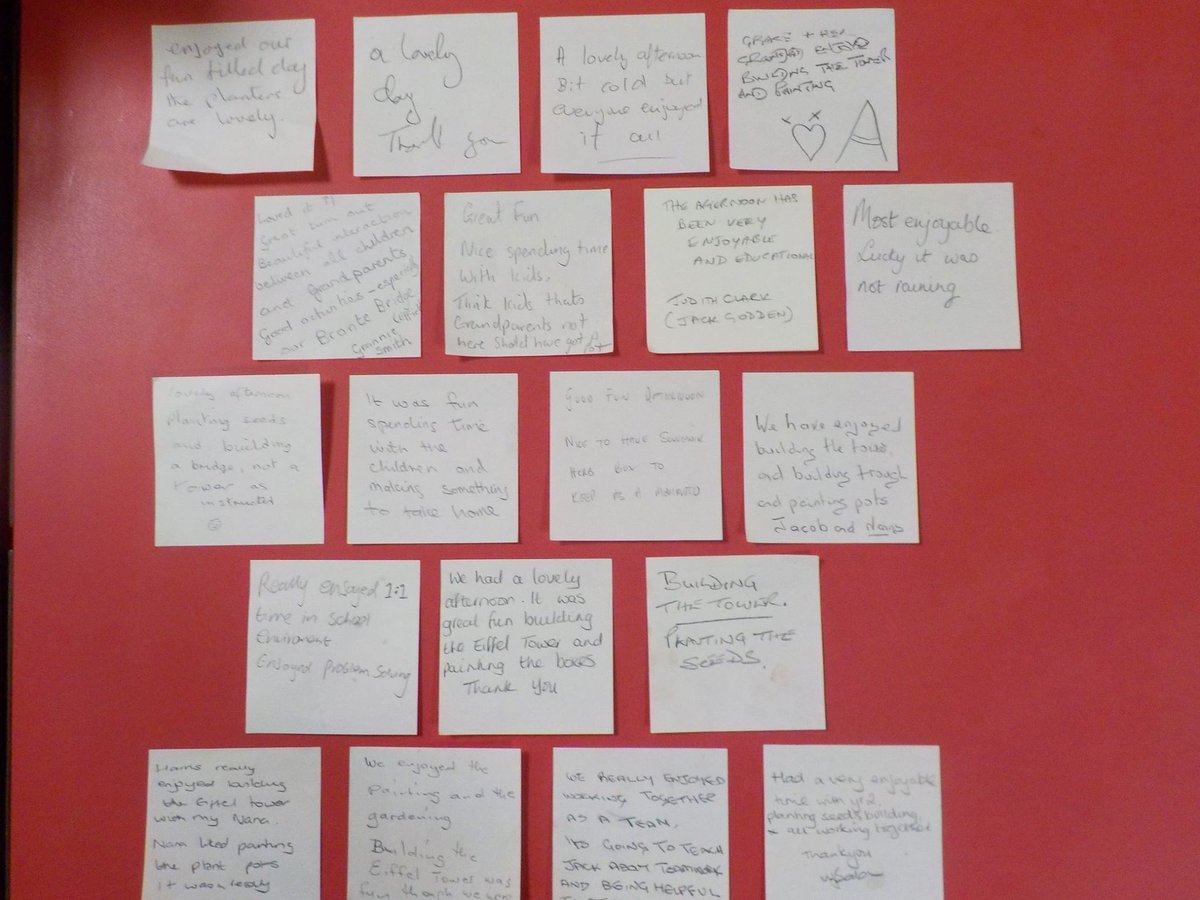 enjoyed our
fun filled day
the planters
are lovely.
a lovely
day
Thank you
A lovely afternoon
Bit cold but
everyone enjoyed
it all
GRACE +
BUILDING THE TOWER
AND PAINTING
Loved it !!
Great turn out
Beautiful interaction
between all children
and grandparents
Good activities - especially
our Bronte Bridge
Grannie
Smith
Great fun
Nice spending time
with kids.
Think kids thats
Grandparents not
here should have got a
Pot
THE AFTERNOON HAS
BEEN VERY
ENJOYABLE
AND EDUCATIONAL
JUDITH CLARK
(JACK GODDEN)
Most enjoyable.
Lucky it was
not raining
Lovely afternoon
Planting seeds
and building
a bridge, not a
tower as
instructed
It was fun
spending time
with the
children and
making something
to take home
GOOD FUN AFTERNOON
NICE TO HAVE
HERB BOX TO
KEEP AS A
We have enjoyed
building the tower,
and building trough
and painting pots
Jacob and Nana
Really enjoyed 1:1
time in school
Enviroment
Enjoyed problem solving
We had a lovely
afternoon. It was
great fun building
the Eiffel Tower and
painting the boxes
Thank You
BUILDING
THE TOWER.
PLANTING THE
SEEDS.
really
enjoyed building
the Eiffel tower
with my Nana.
Nana liked painting
the plant pots
it was really
We enjoyed the
Painting and the
gardening
Building the
Eiffel Tower was
fun though we
WE REALLY ENJOYED
WORKING TOGETHER
AS A TEAM.
GOING TO TEACH
JACK ABOUT TEAMWORK
AND BEING HELPFUL
Had a very enjoyable
time with yr2,
planting seeds, building,
+ all working together
Thankyou